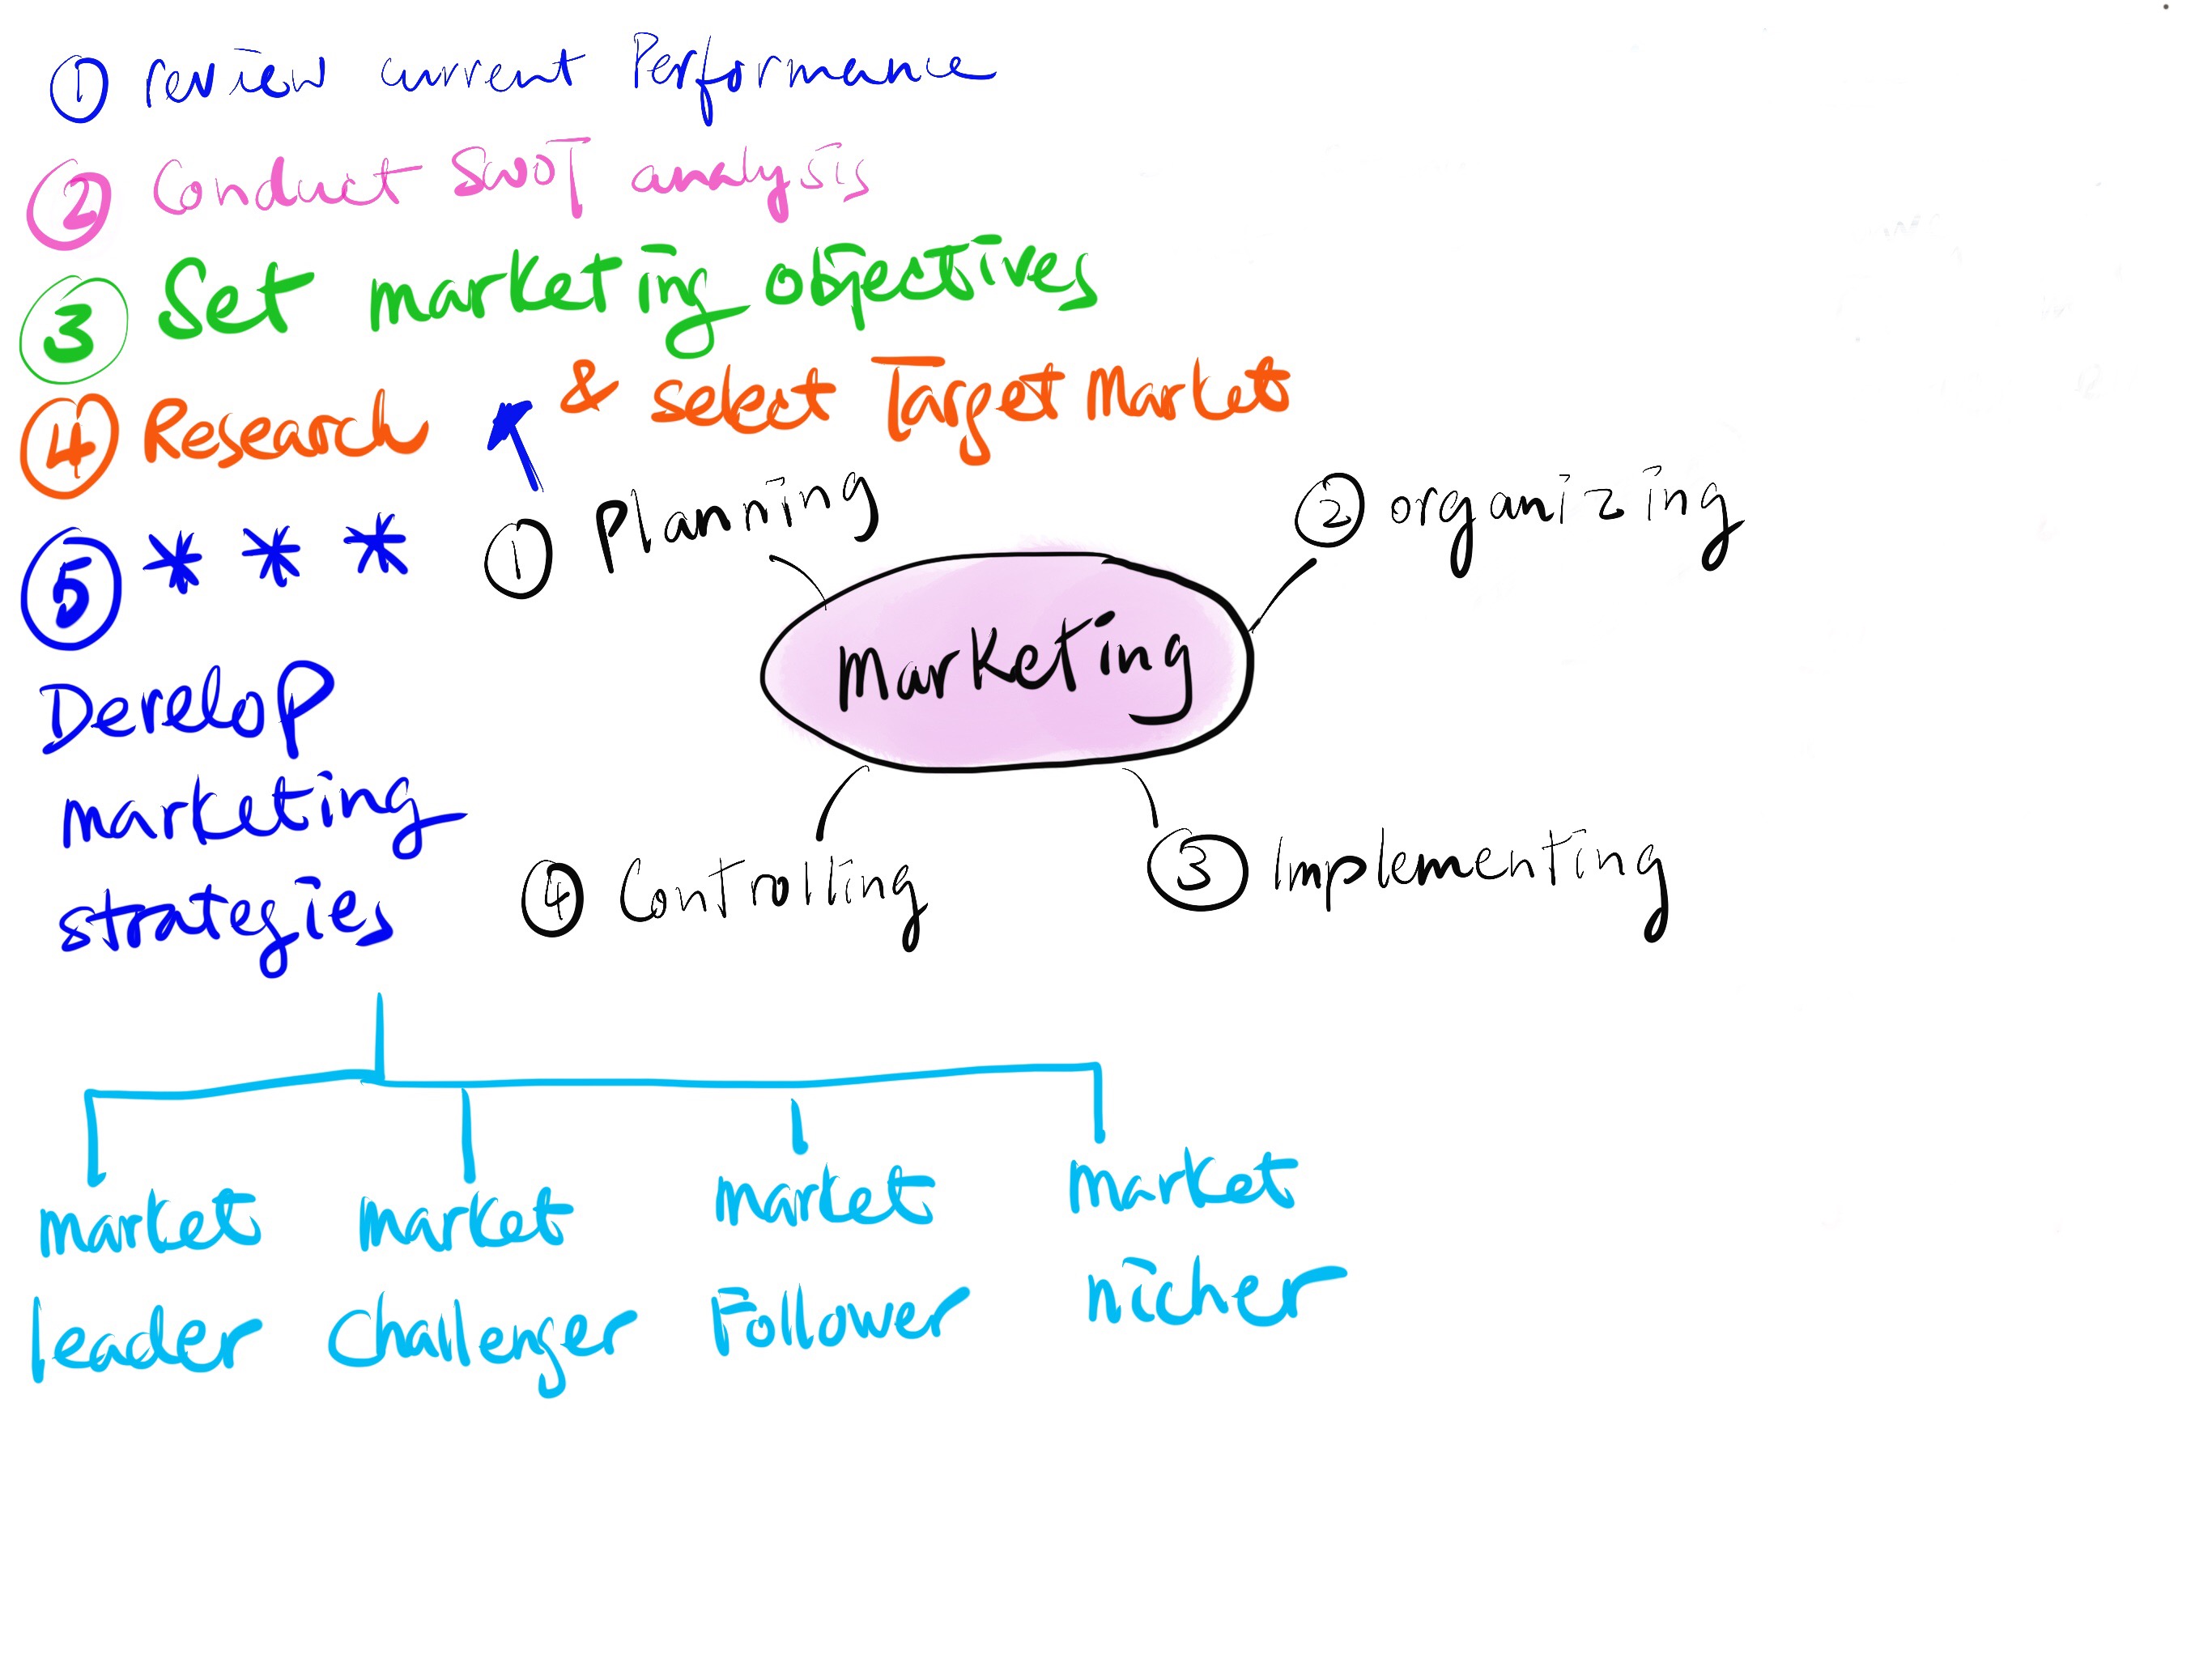 ① review current Performance
② Conduct SWOT analysis
③ Set marketing objectives
④ Research & select Target Market
① Planning
② organizing
⑤ * * *
Marketing
Develop
marketing
strategies
④ Controlling
③ Implementing
market market market market
leader Challenger Follower nicher